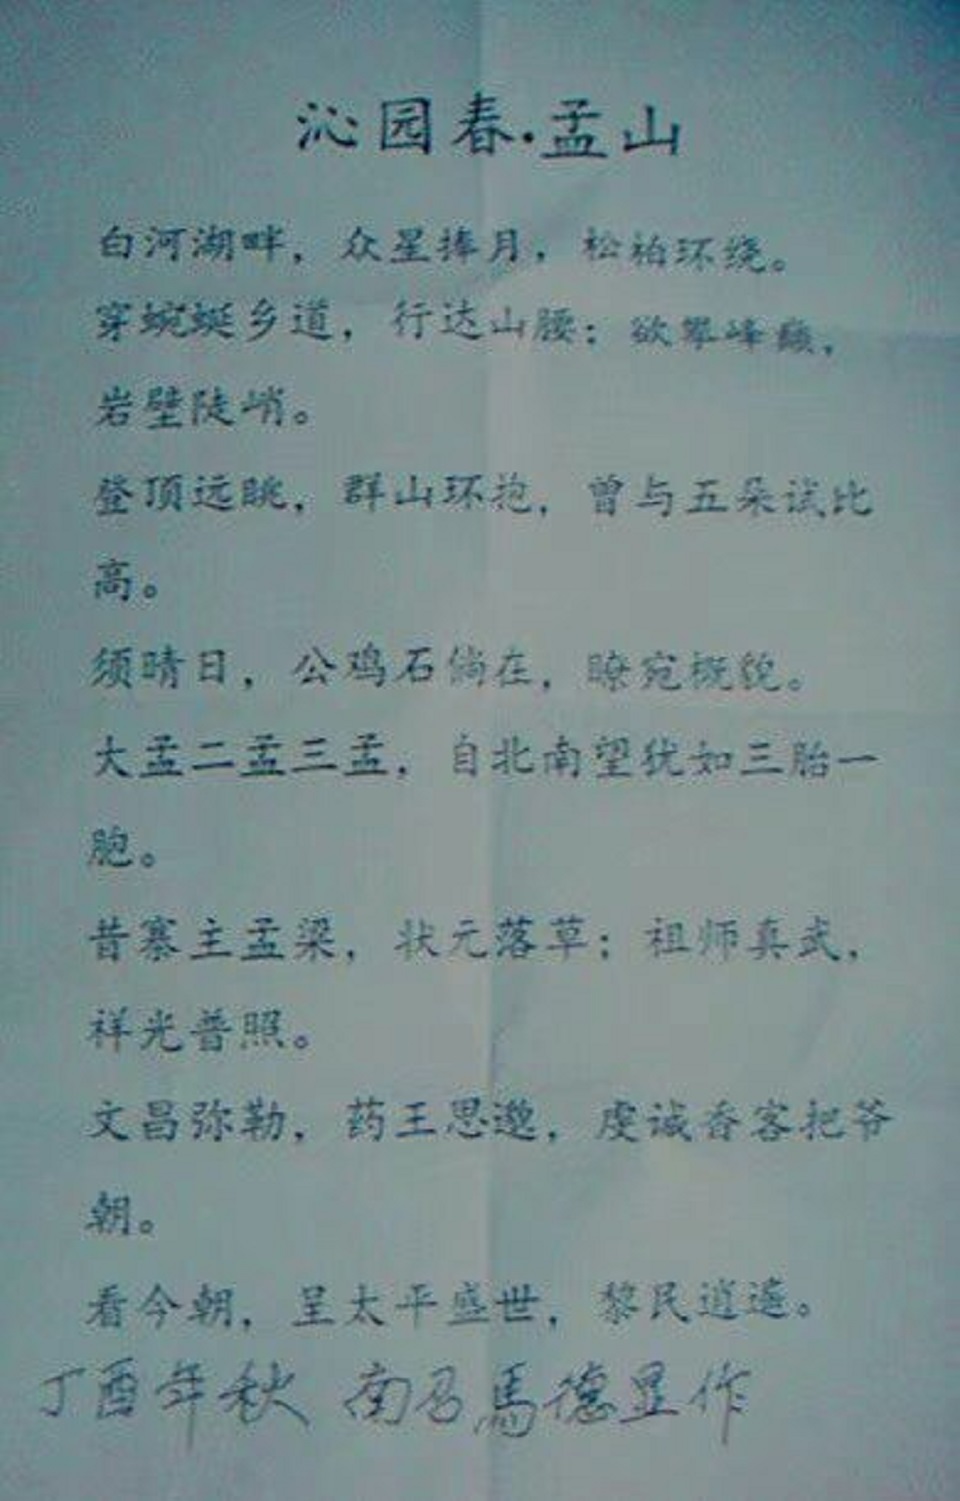 沁园春·孟山
白河湖畔，众星捧月，松柏环绕。
穿蜿蜒乡道，行达山腰；欲攀峰巅，
岩壁陡峭。
登顶远眺，群山环抱，曾与五朵试比
高。
须晴日，公鸡石倘在，瞭宛概貌。
大孟二孟三孟，自北南望犹如三胎一
胞。
昔寨主孟梁，状元落草；祖师真武，
祥光普照。
文昌弥勒，药王思邈，虔诚香客把爷
朝。
看今朝，呈太平盛世，黎民逍遥。
丁酉年秋 南召馬德显作